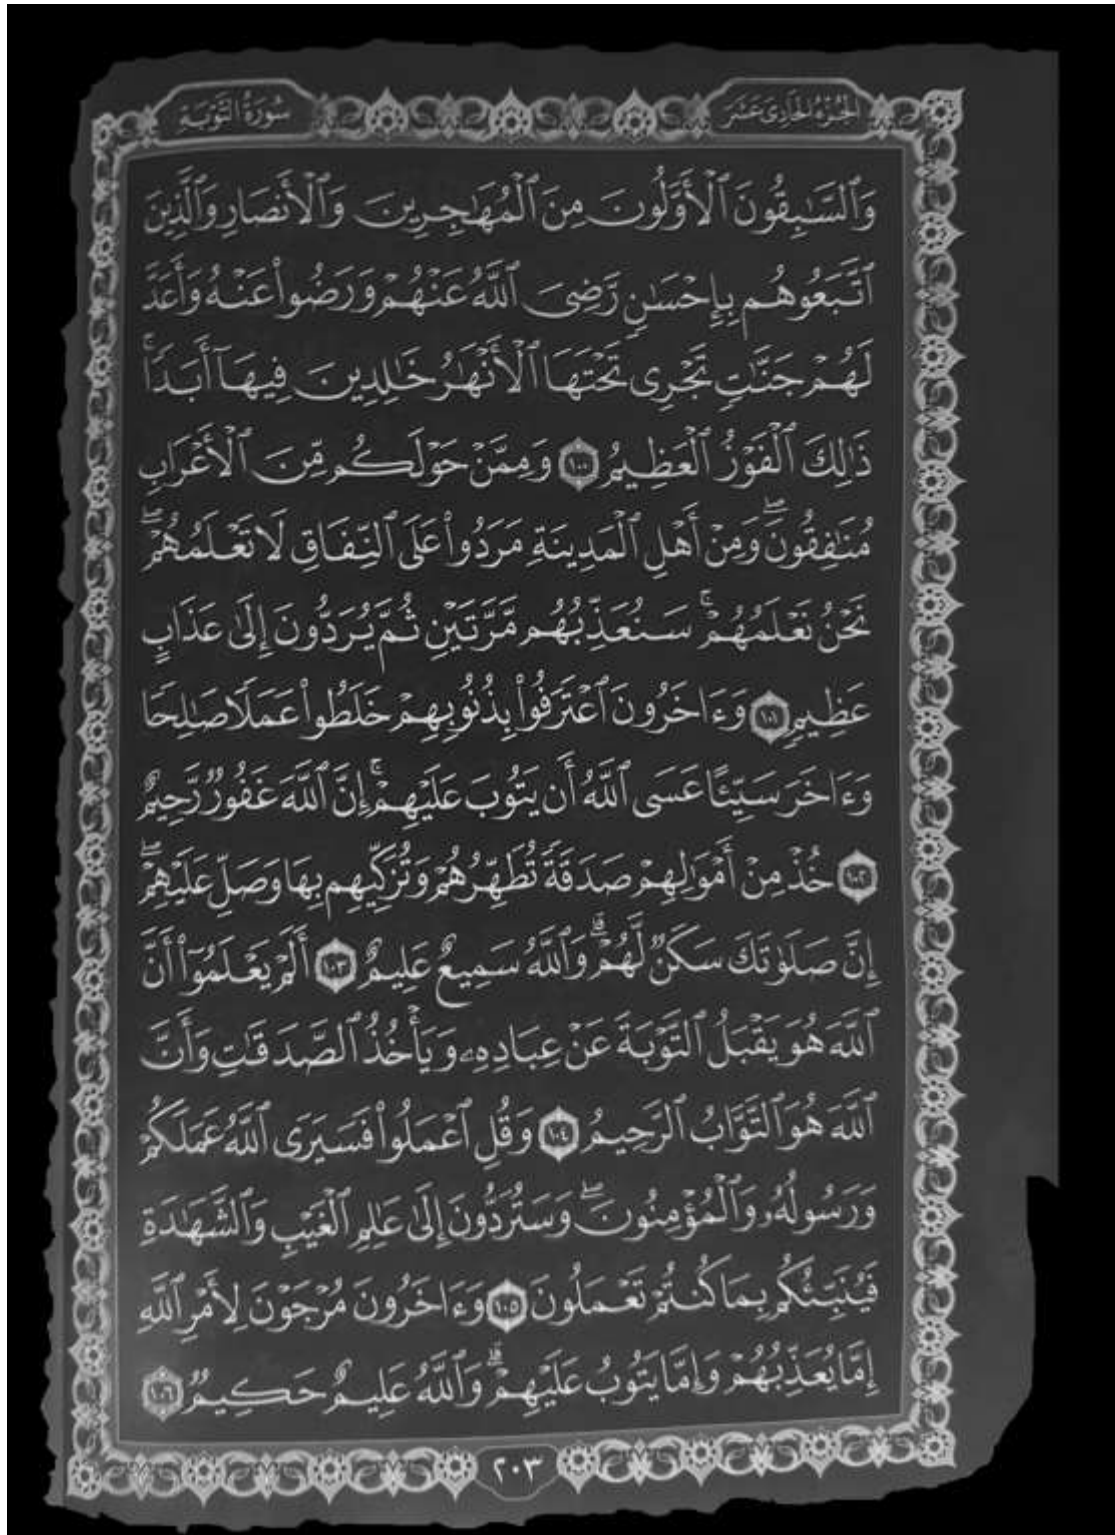 الجُزْءُ الحَادِيَ عَشَرَ
سُورَةُ التَّوْبَةِ
وَٱلسَّٰبِقُونَ ٱلْأَوَّلُونَ مِنَ ٱلْمُهَٰجِرِينَ وَٱلْأَنصَارِ وَٱلَّذِينَ
ٱتَّبَعُوهُم بِإِحْسَٰنٍ رَّضِىَ ٱللَّهُ عَنْهُمْ وَرَضُوا۟ عَنْهُ وَأَعَدَّ
لَهُمْ جَنَّٰتٍ تَجْرِى تَحْتَهَا ٱلْأَنْهَٰرُ خَٰلِدِينَ فِيهَآ أَبَدًا ۚ
ذَٰلِكَ ٱلْفَوْزُ ٱلْعَظِيمُ ١٠٠ وَمِمَّنْ حَوْلَكُم مِّنَ ٱلْأَعْرَابِ
مُنَٰفِقُونَ ۖ وَمِنْ أَهْلِ ٱلْمَدِينَةِ مَرَدُوا۟ عَلَى ٱلنِّفَاقِ لَا تَعْلَمُهُمْ ۖ
نَحْنُ نَعْلَمُهُمْ ۚ سَنُعَذِّبُهُم مَّرَّتَيْنِ ثُمَّ يُرَدُّونَ إِلَىٰ عَذَابٍ
عَظِيمٍ ١٠١ وَءَاخَرُونَ ٱعْتَرَفُوا۟ بِذُنُوبِهِمْ خَلَطُوا۟ عَمَلًا صَٰلِحًا
وَءَاخَرَ سَيِّئًا عَسَى ٱللَّهُ أَن يَتُوبَ عَلَيْهِمْ ۚ إِنَّ ٱللَّهَ غَفُورٌ رَّحِيمٌ
١٠٢ خُذْ مِنْ أَمْوَٰلِهِمْ صَدَقَةً تُطَهِّرُهُمْ وَتُزَكِّيهِم بِهَا وَصَلِّ عَلَيْهِمْ ۖ
إِنَّ صَلَوٰتَكَ سَكَنٌ لَّهُمْ ۗ وَٱللَّهُ سَمِيعٌ عَلِيمٌ ١٠٣ أَلَمْ يَعْلَمُوٓا۟ أَنَّ
ٱللَّهَ هُوَ يَقْبَلُ ٱلتَّوْبَةَ عَنْ عِبَادِهِۦ وَيَأْخُذُ ٱلصَّدَقَٰتِ وَأَنَّ
ٱللَّهَ هُوَ ٱلتَّوَّابُ ٱلرَّحِيمُ ١٠٤ وَقُلِ ٱعْمَلُوا۟ فَسَيَرَى ٱللَّهُ عَمَلَكُمْ
وَرَسُولُهُۥ وَٱلْمُؤْمِنُونَ ۖ وَسَتُرَدُّونَ إِلَىٰ عَٰلِمِ ٱلْغَيْبِ وَٱلشَّهَٰدَةِ
فَيُنَبِّئُكُم بِمَا كُنتُمْ تَعْمَلُونَ ١٠٥ وَءَاخَرُونَ مُرْجَوْنَ لِأَمْرِ ٱللَّهِ
إِمَّا يُعَذِّبُهُمْ وَإِمَّا يَتُوبُ عَلَيْهِمْ ۗ وَٱللَّهُ عَلِيمٌ حَكِيمٌ ١٠٦
٢٠٣